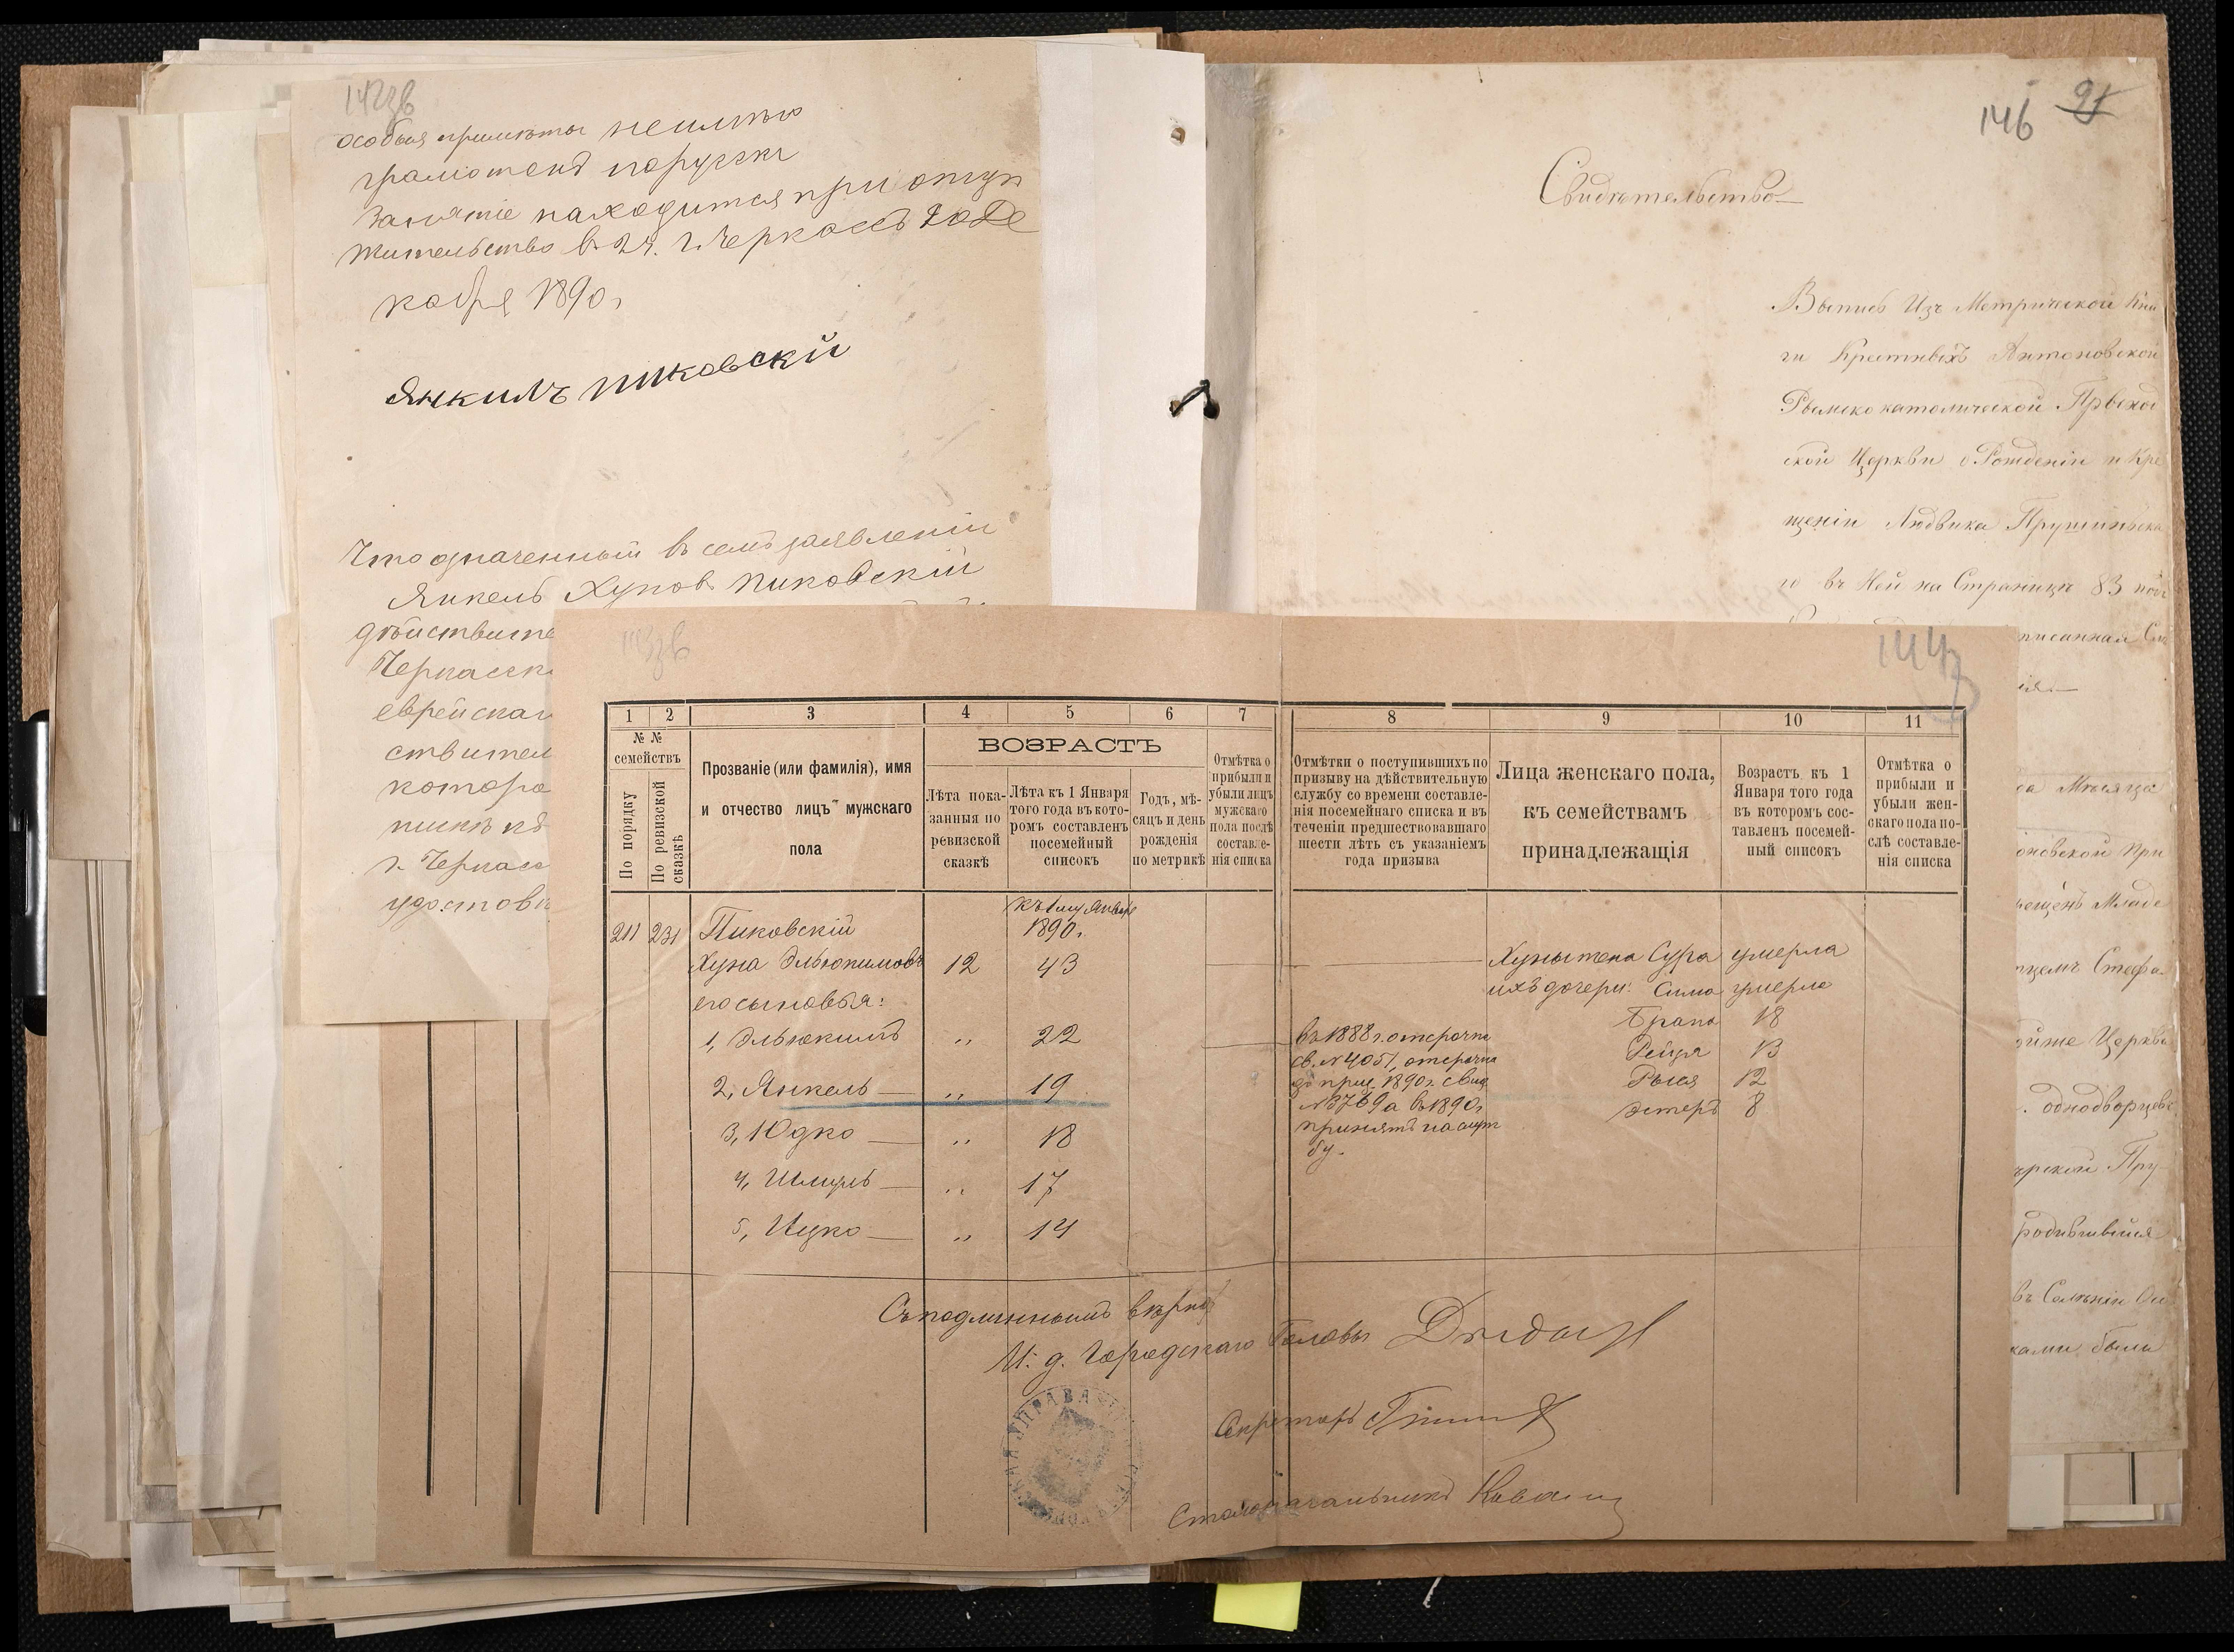 142зв
особыя приметы неимѣю
грамотенъ порусски
Занятіе находится при отцѣ
жительство в 2ч. г. Черкассъ 20 Де
кабря 1890 г
Янкиль Пиковскій
Что означенный въ семъ заявленіи
Янкель Хунов Пиковскій
дѣйствите
Черкасск
еврейскаг
ствител
которо
пискѣ къ
г. Черкасс
удостовѣ
146 91
Свидѣтельство
Выпись Изъ Метрической Кни
ги Крестныхъ Антоновской
Римско католической Приход
ской Церкви о Рожденіи и Кре
щеніи Людвика Прушиньска
го въ Ней на Страницѣ 83 подъ
писанная
ія.
да Мѣсяца
оновской При
рещенъ Младе
Стефа
ойже Церкви
однодворцевъ
рской Пру
родившійся
въ Селеніи
ками были
143зв
144
1 2 3 4 5 6 7 8 9 10 11
№ №
семействъ
По порядку
По ревизской сказкѣ
Прозваніе (или фамилія), имя
и отчество лицъ мужскаго
пола
ВОЗРАСТЪ
Лѣта пока-
занныя по
ревизской
сказкѣ
Лѣта къ 1 Января
того года въ кото-
ромъ составленъ
посемейный
списокъ
Годъ, мѣ-
сяцъ и день
рожденія
по метрикѣ
Отмѣтка о
прибыли и
убыли лицъ
мужскаго
пола послѣ
составле-
нія списка
Отмѣтки о поступившихъ по
призыву на дѣйствительную
службу со времени составле-
нія посемейнаго списка и въ
теченіи предшествовавшаго
шести лѣтъ съ указаніемъ
года призыва
Лица женскаго пола,
къ семействамъ
принадлежащія
Возрастъ къ 1
Января того года
въ которомъ сос-
тавленъ посемей-
ный списокъ
Отмѣтка о
прибыли и
убыли жен-
скаго пола по-
слѣ составле-
нія списка
къ 1му Января
211 231 Пиковскій 1890 г.
Хуна Эльюкимовъ 12 43 Хуны жена Сура умерла
его сыновья: ихъ дочери: Сима умерла
Брана 18
1, Эльюкимъ " 22 въ 1888 г. отсрочка Рейзя 13
св. N 4051, отсрочка
2, Янкель — " 19 до приз. 1890 г. свид Рыся 12
N 3769 а въ 1890 г Эстеръ 8
3, Юдко — " 18 принятъ на служ
бу.
4, Шмуль — " 17
5, Ицко — " 14
Съ подлиннымъ вѣрно
И. д. Городскаго Головы
Секретарь
Столоначальникъ
УПРАВА